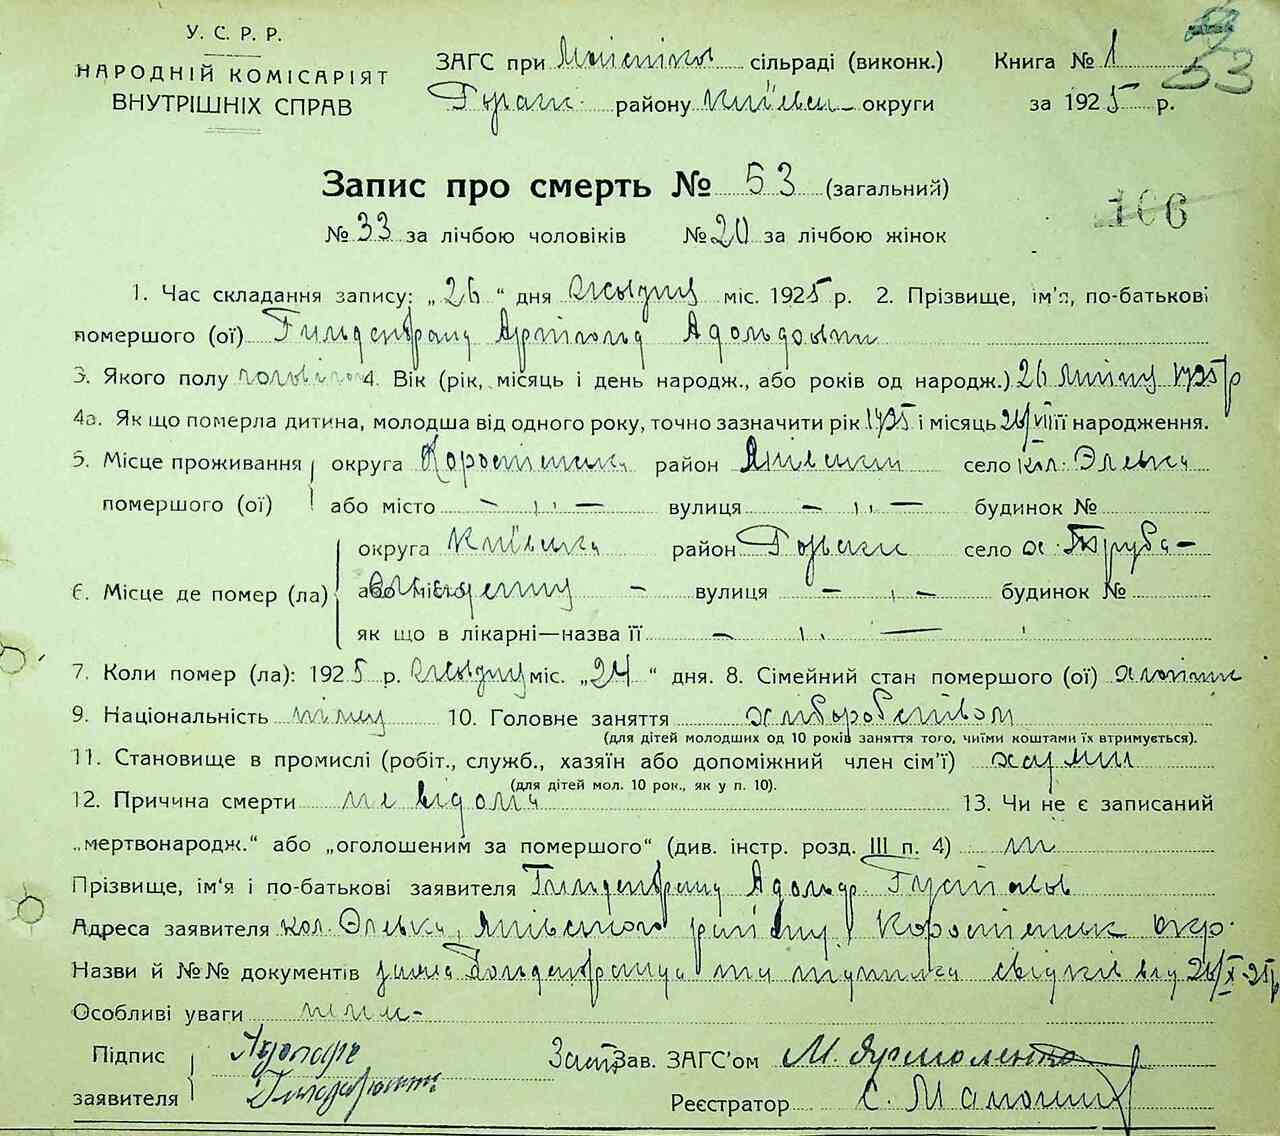 У. С. Р. Р.
НАРОДНІЙ КОМІСАРІЯТ
ВНУТРІШНІХ СПРАВ
ЗАГС при сільраді (виконк.)
району Київськ округи
Книга № 1
за 1925 р.
53
Запис про смерть № 53 (загальний)
106
№ 33 за лічбою чоловіків № 20 за лічбою жінок
1. Час складання запису: „26“ дня міс. 1925 р. 2. Прізвище, ім'я, по-батькові
помершого (ої) Гильденбранд Арнольд Адольфович
3. Якого полу чоловічого 4. Вік (рік, місяць і день народж., або років од народж.) 26 липня 1925 р
4а. Як що померла дитина, молодша від одного року, точно зазначити рік 1925 і місяць 26/VII її народження.
5. Місце проживання округа Коростенська район село кол.
помершого (ої) або місто — „ — вулиця — „ — будинок №
6. Місце де помер (ла) округа Київська район село х. Труба-
або місто — вулиця — „ — будинок №
як що в лікарні—назва її — „ —
7. Коли помер (ла): 1925 р. міс. „24“ дня. 8. Сімейний стан помершого (ої)
9. Національність німець 10. Головне заняття хліборобством
(для дітей молодших од 10 років заняття того, чиїми коштами їх втримується).
11. Становище в промислі (робіт., служб., хазяїн або допоміжний член сім'ї) хазяин
(для дітей мол. 10 рок., як у п. 10).
12. Причина смерти не відома 13. Чи не є записаний
„мертвонародж.“ або „оголошеним за помершого“ (див. інстр. розд. III п. 4) ні
Прізвище, ім'я і по-батькові заявителя Гильденбранд Адольф Густавов
Адреса заявителя кол. району, Коростенськ окр.
Назви й №№ документів заява та свідків від 26/X-25р
Особливі уваги нема-
Підпис
заявителя Адольф
Заст Зав. ЗАГС'ом М. Ярмоленко
Реєстратор С.